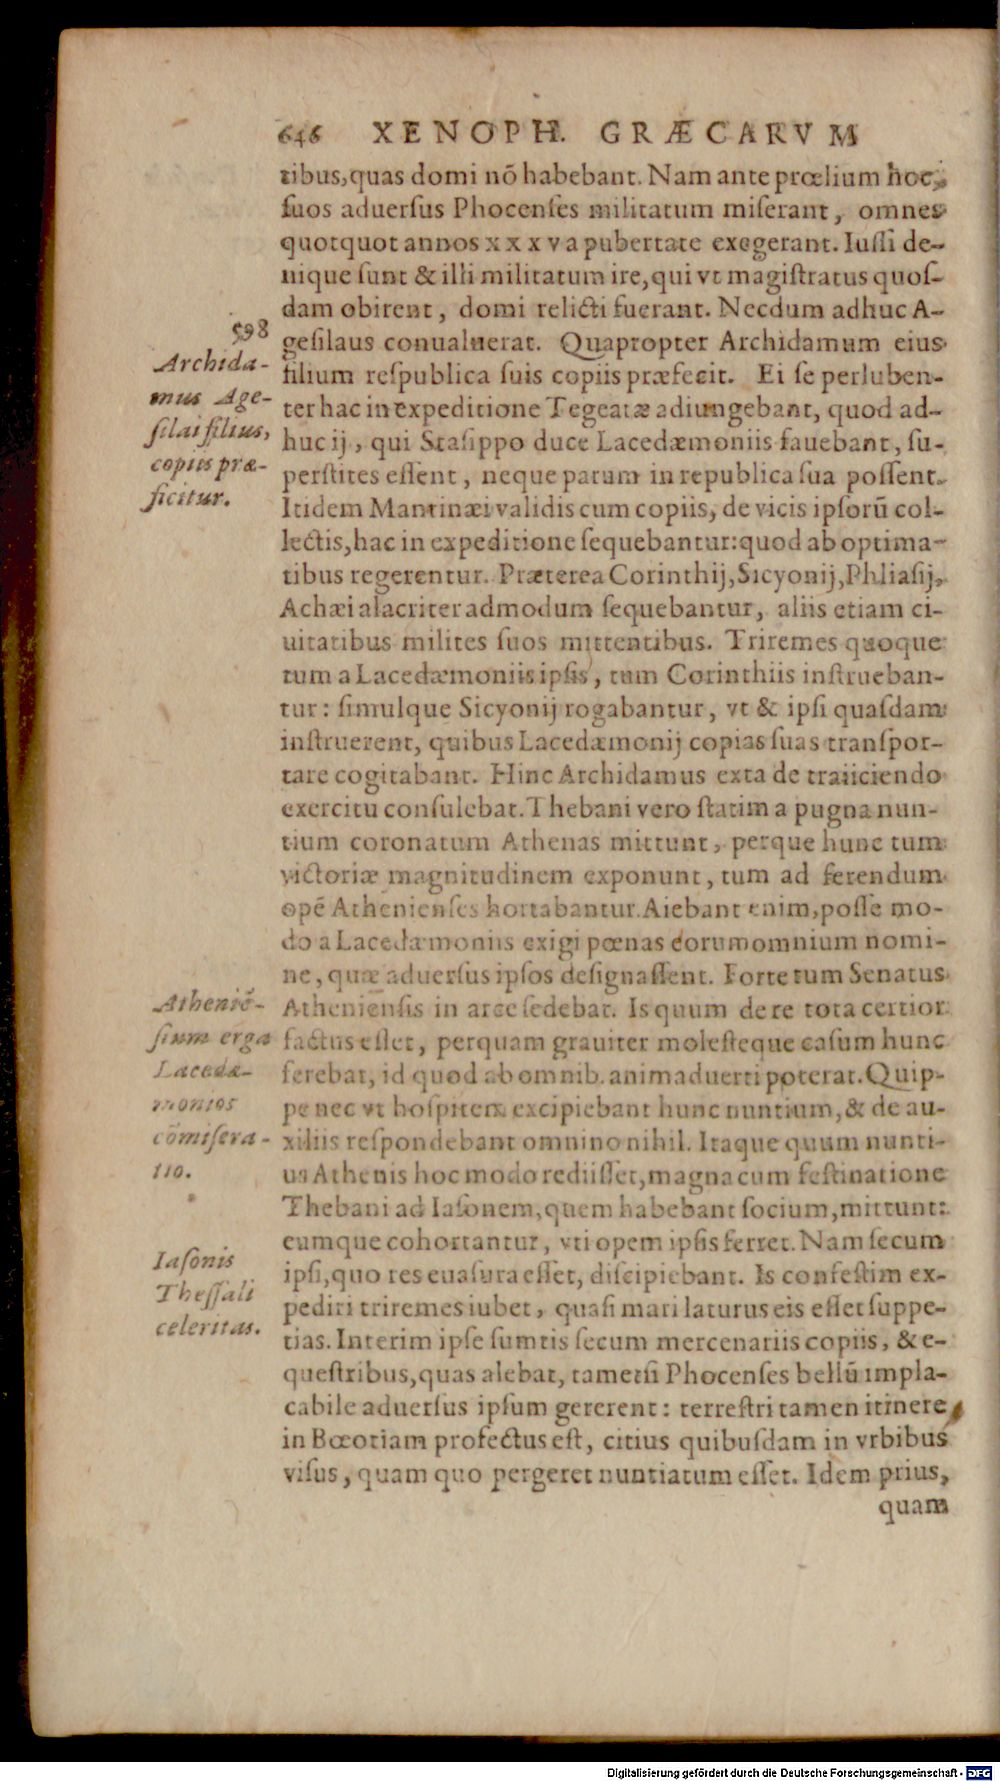 646 XENOPH. GRÆCARVM
tibus, quas domi nō habebant. Nam ante prœlium hoc,
ſuos aduerſus Phocenſes militatum miſerant, omnes
quotquot annos xxxv a pubertate exegerant. Iuſſi de-
nique ſunt & illi militatum ire, qui vt magiſtratus quoſ-
dam obirent, domi relicti fuerant. Necdum adhuc A-
598
geſilaus conualuerat. Quapropter Archidamum eius
filium reſpublica ſuis copiis præfecit. Ei ſe perluben-
ter hac in expeditione Tegeatæ adiungebant, quod ad-
huc ij, qui Staſippo duce Lacedæmoniis fauebant, ſu-
perſtites eſſent, neque parum in republica ſua poſſent.
Archida-
mus Age-
ſilai filius,
copiis præ-
ficitur.
Itidem Mantinæi validis cum copiis, de vicis ipſorū col-
lectis, hac in expeditione ſequebantur: quod ab optima-
tibus regerentur. Præterea Corinthij, Sicyonij, Phliaſij,
Achæi alacriter admodum ſequebantur, aliis etiam ci-
uitatibus milites ſuos mittentibus. Triremes quoque
tum a Lacedæmoniis ipſis, tum Corinthiis inſtrueban-
tur: ſimulque Sicyonij rogabantur, vt & ipſi quaſdam
inſtruerent, quibus Lacedæmonij copias ſuas tranſpor-
tare cogitabant. Hinc Archidamus exta de traiiciendo
exercitu conſulebat. Thebani vero ſtatim a pugna nun-
tium coronatum Athenas mittunt, perque hunc tum
victoriæ magnitudinem exponunt, tum ad ferendum
opē Athenienſes hortabantur. Aiebant enim, poſſe mo-
do a Lacedæmoniis exigi pœnas eorum omnium nomi-
ne, quæ aduerſus ipſos deſignaſſent. Forte tum Senatus
Athenienſis in arce ſedebat. Is quum de re tota certior
factus eſſet, perquam grauiter moleſteque caſum hunc
ferebat, id quod ab omnib. animaduerti poterat. Quip-
pe nec vt hoſpitem excipiebant hunc nuntium, & de au-
xiliis reſpondebant omnino nihil. Itaque quum nunti-
us Athenis hoc modo rediiſſet, magna cum feſtinatione
Atheniē-
ſium erga
Lacedæ-
monios
cōmiſera-
tio.
Thebani ad Iaſonem, quem habebant ſocium, mittunt:
eumque cohortantur, vti opem ipſis ferret. Nam ſecum
ipſi, quo res euaſura eſſet, diſcipiebant. Is confeſtim ex-
pediri triremes iubet, quaſi mari laturus eis eſſet ſuppe-
tias. Interim ipſe ſumtis ſecum mercenariis copiis, & e-
Iaſonis
Theſſali
celeritas.
queſtribus, quas alebat, tametſi Phocenſes bellū impla-
cabile aduerſus ipſum gererent: terreſtri tamen itinere
in Bœotiam profectus eſt, citius quibuſdam in vrbibus
viſus, quam quo pergeret nuntiatum eſſet. Idem prius,
quam
Digitalisierung gefördert durch die Deutsche Forschungsgemeinschaft - DFG